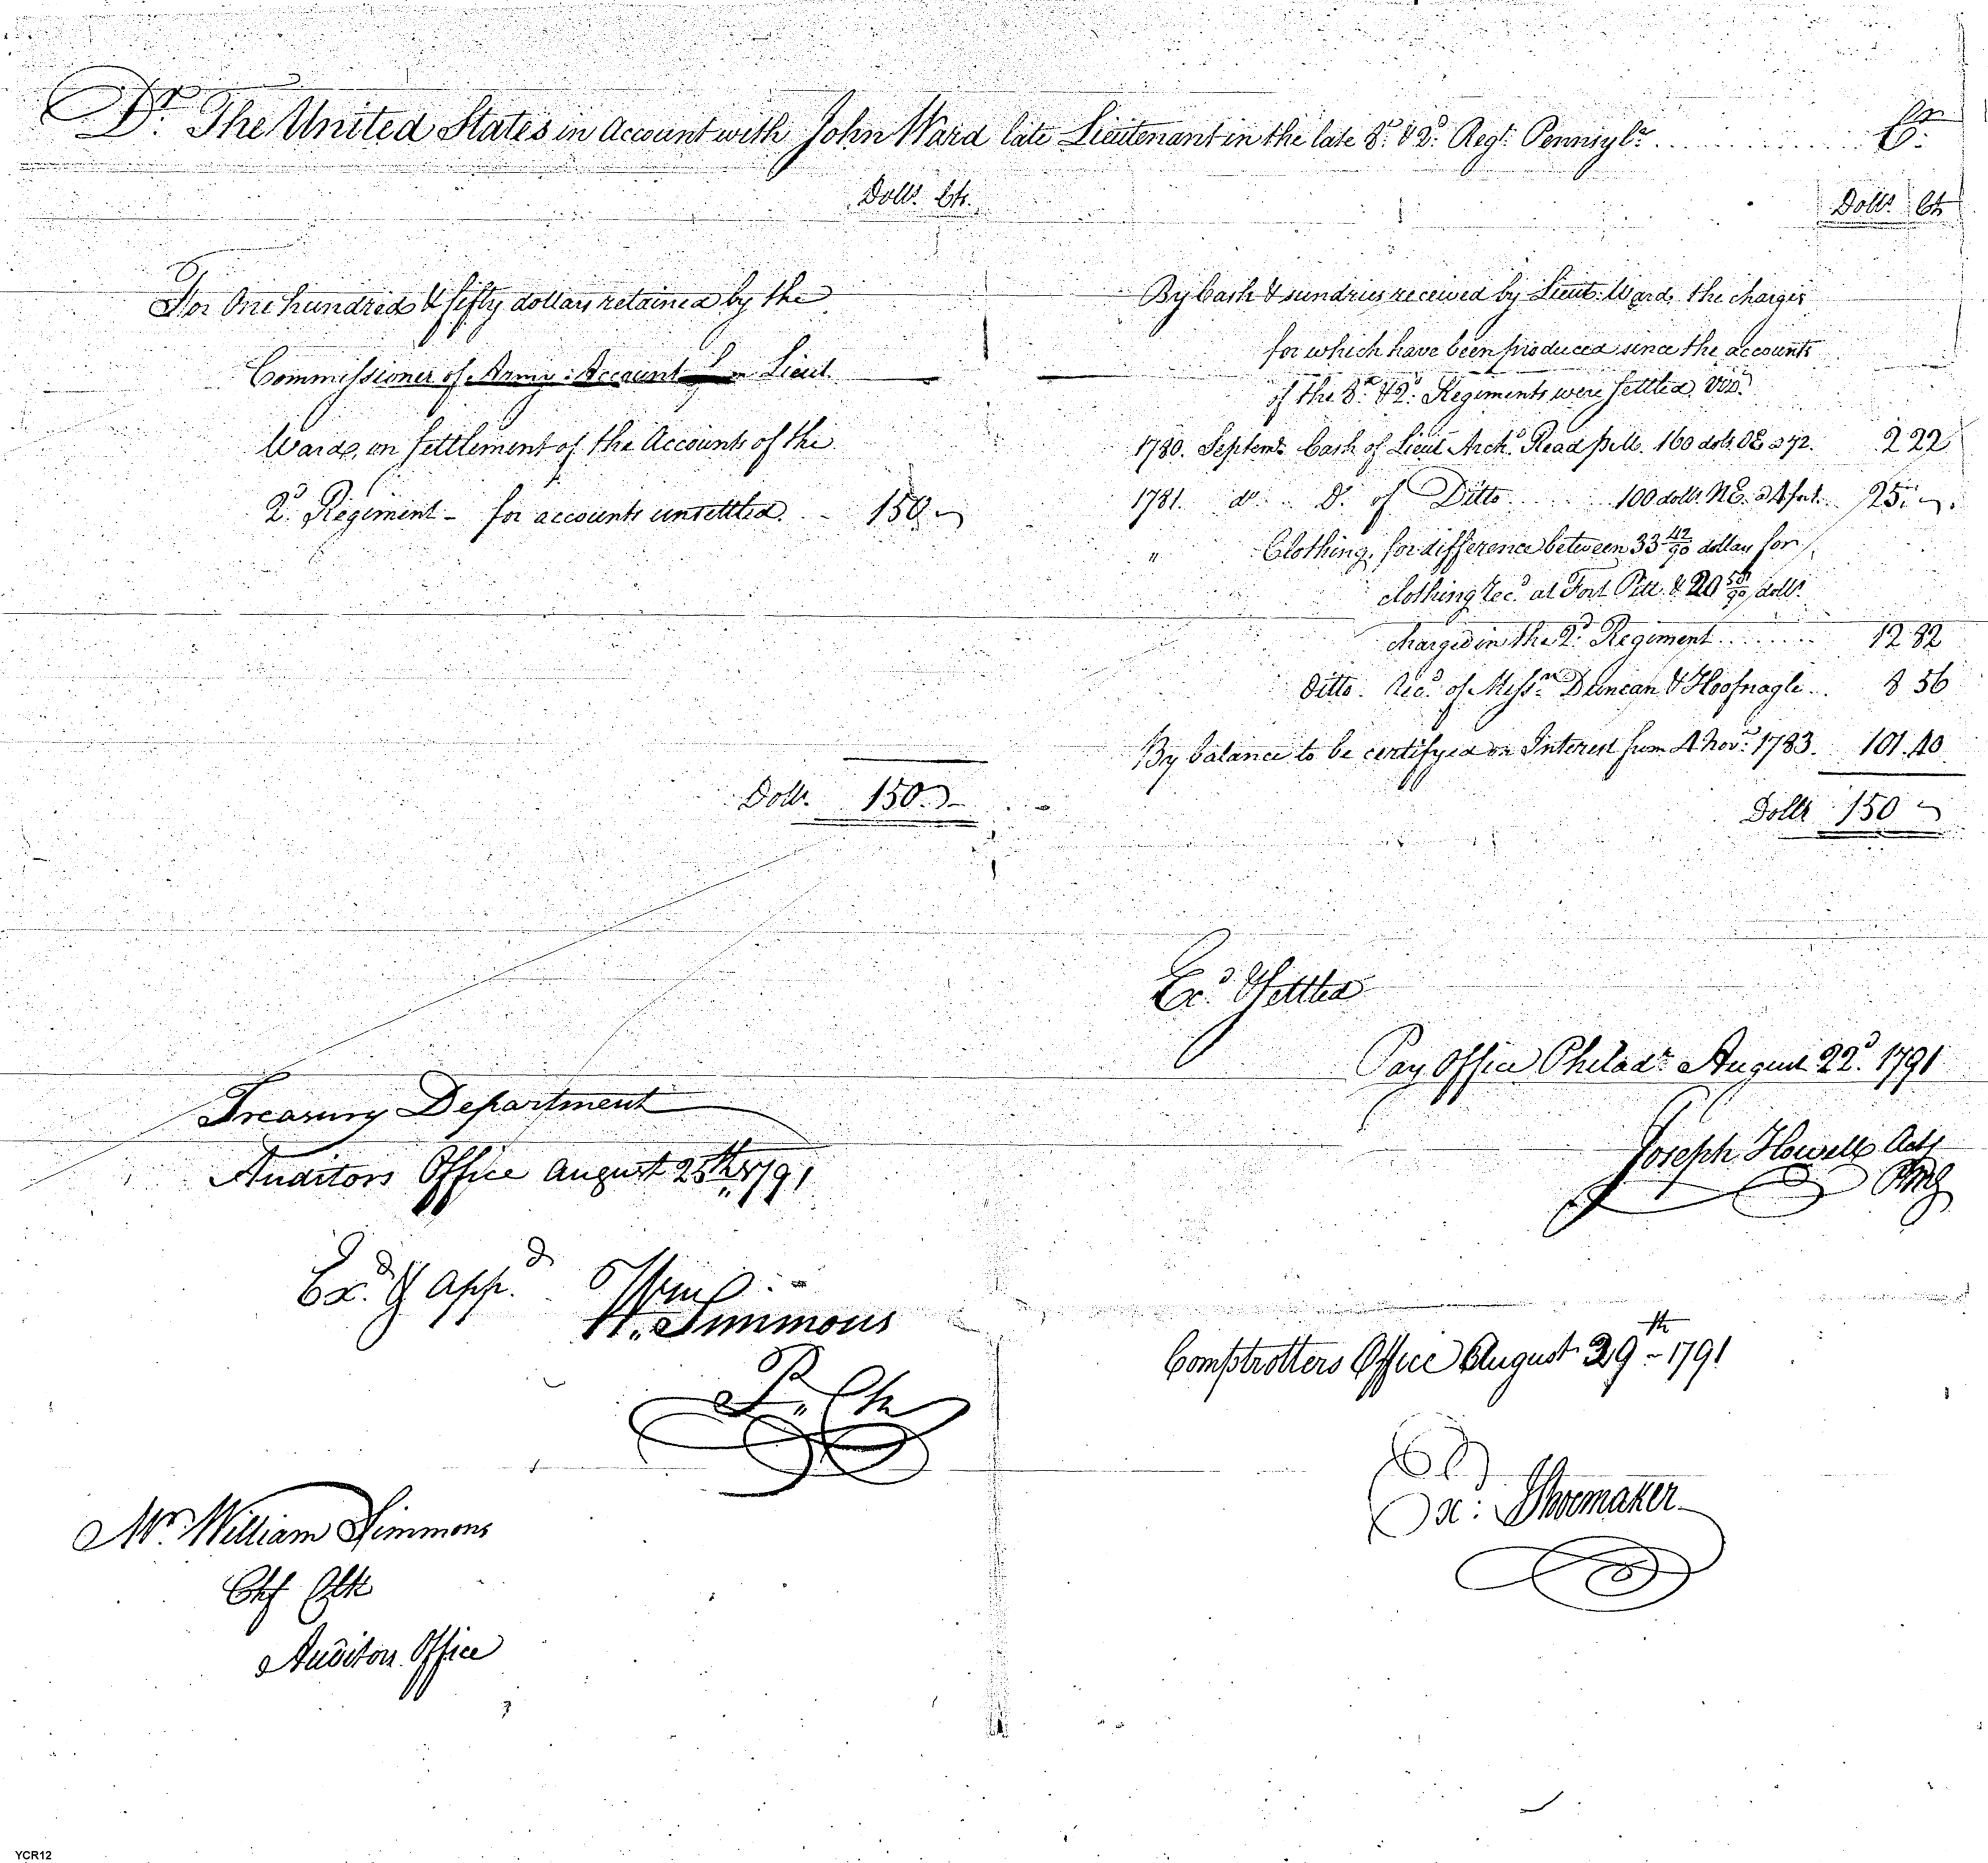 Dr. The United States in Account with John Ward late Lieutenant in the late 8th & 2d. Regt. Pennsylva. Cr.
Dolls. Cts.
Dolls. Cts
For One hundred & fifty dollars retained by the
Commissioner of Army Accounts from Lieut.
Ward, on settlement of the Accounts of the
2d. Regiment - for accounts unsettled. - 150 ~
Dolls. 150 ~
By Cash & sundries received by Lieut. Ward, the charges
for which have been produced since the accounts
of the 8th & 2d. Regiments were settled Vizt.
1780. Septemr. Cash of Lieut Archd. Read p M. 160 dolls. OE a 72. 2 22
1781. do. Do. of Ditto 100 dolls. NE. a 4 for 1. 25. ~.
" Clothing, for difference between 33 42/90 dollars for
clothing Rec'd. at Fort Pitt. & 20 58/90 dolls.
charged in the 2d. Regiment 12 82
Ditto. Rec'd. of Messrs. Duncan & Hoofnagle 8 56
By balance to be certifyed on Interest from 4 Novr. 1783. 101.40
Dolls 150 ~
Exd. & Settled
Pay Office Philada. August 22d. 1791
Joseph Howell Actg
PMG
Treasury Department
Auditors Office August 25th 1791
Exd. & appd.
Wm. Simmons
P. Clk
Mr. William Simmons
Chf Clk
Auditors Office
Comptrollers Office August 29th - 1791
Exd: Shoemaker
YCR12